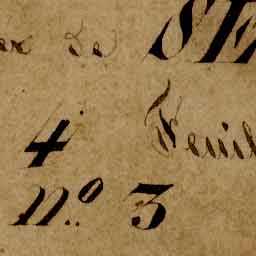 de SE
4 Feuil
N.º 3